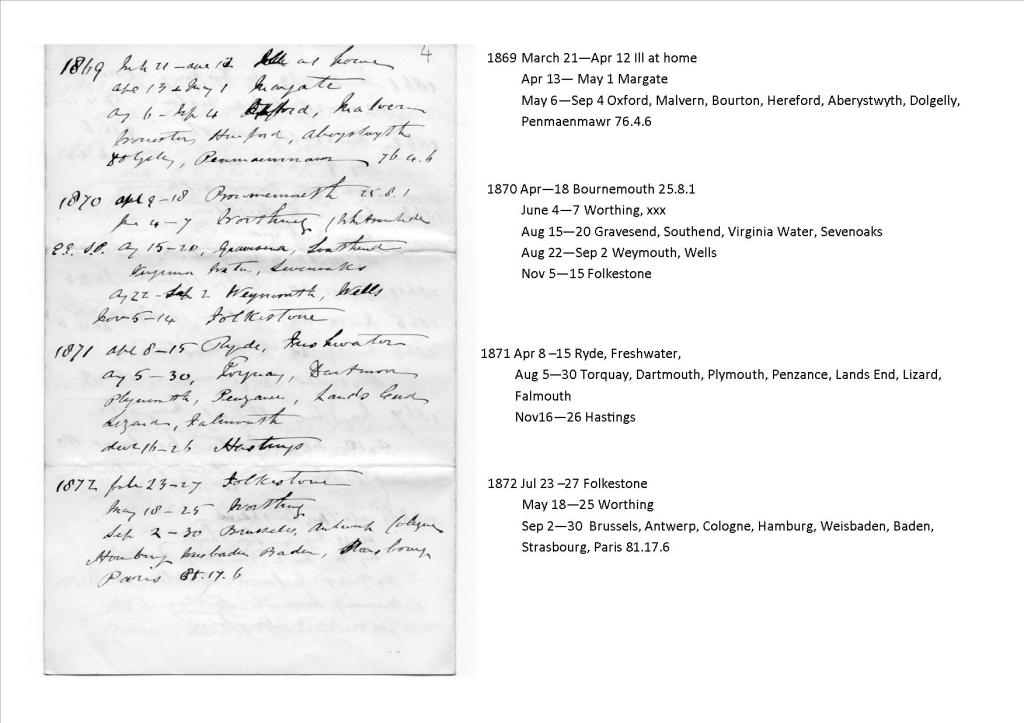 4
1869
at home
Margate
Sep 4 Oxford, Malvern
Hereford, Aberystwyth
Penmaenmawr 76.4.6
1870 Apl 9-18 Bournemouth 25.8.1
4-7 Worthing
15-20, Gravesend, Southend
Virginia Water, Sevenoaks
22 - Sep 2 Weymouth, Wells
Nov 5-14 Folkestone
1871 Apl 8-15 Ryde, Freshwater
5-30, Torquay,
Plymouth, Penzance, Lands End
Lizard, Falmouth
16-26 Hastings
1872 23-27 Folkestone
May 18-25 Worthing
Sep 2-30 Brussels, Antwerp Cologne
Baden, Strasbourg
Paris
1869 March 21—Apr 12 Ill at home
Apr 13— May 1 Margate
May 6—Sep 4 Oxford, Malvern, Bourton, Hereford, Aberystwyth, Dolgelly,
Penmaenmawr 76.4.6
1870 Apr—18 Bournemouth 25.8.1
June 4—7 Worthing, xxx
Aug 15—20 Gravesend, Southend, Virginia Water, Sevenoaks
Aug 22—Sep 2 Weymouth, Wells
Nov 5—15 Folkestone
1871 Apr 8 –15 Ryde, Freshwater,
Aug 5—30 Torquay, Dartmouth, Plymouth, Penzance, Lands End, Lizard,
Falmouth
Nov16—26 Hastings
1872 Jul 23 –27 Folkestone
May 18—25 Worthing
Sep 2—30 Brussels, Antwerp, Cologne, Hamburg, Weisbaden, Baden,
Strasbourg, Paris 81.17.6